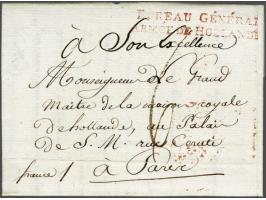 BUREAU GÉNÉRAL
ARMÉE DE HOLLANDE
à Son Excellence
Monseigneur Le Grand
Maitre de la maison royale
de hollande, au Palais
de S. M. rue Ceruti
franco à Paris